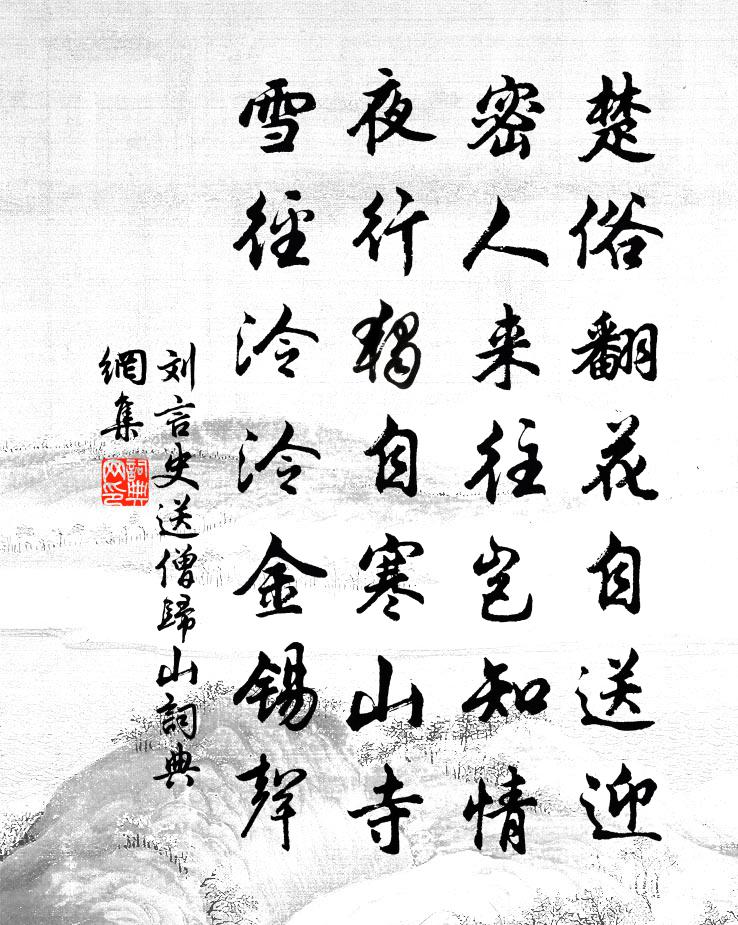 楚俗翻花自送迎
密人来往岂知情
夜行獨自寒山寺
雪徑泠泠金锡聲
刘言史送僧歸山詞典
網集
詞典网印